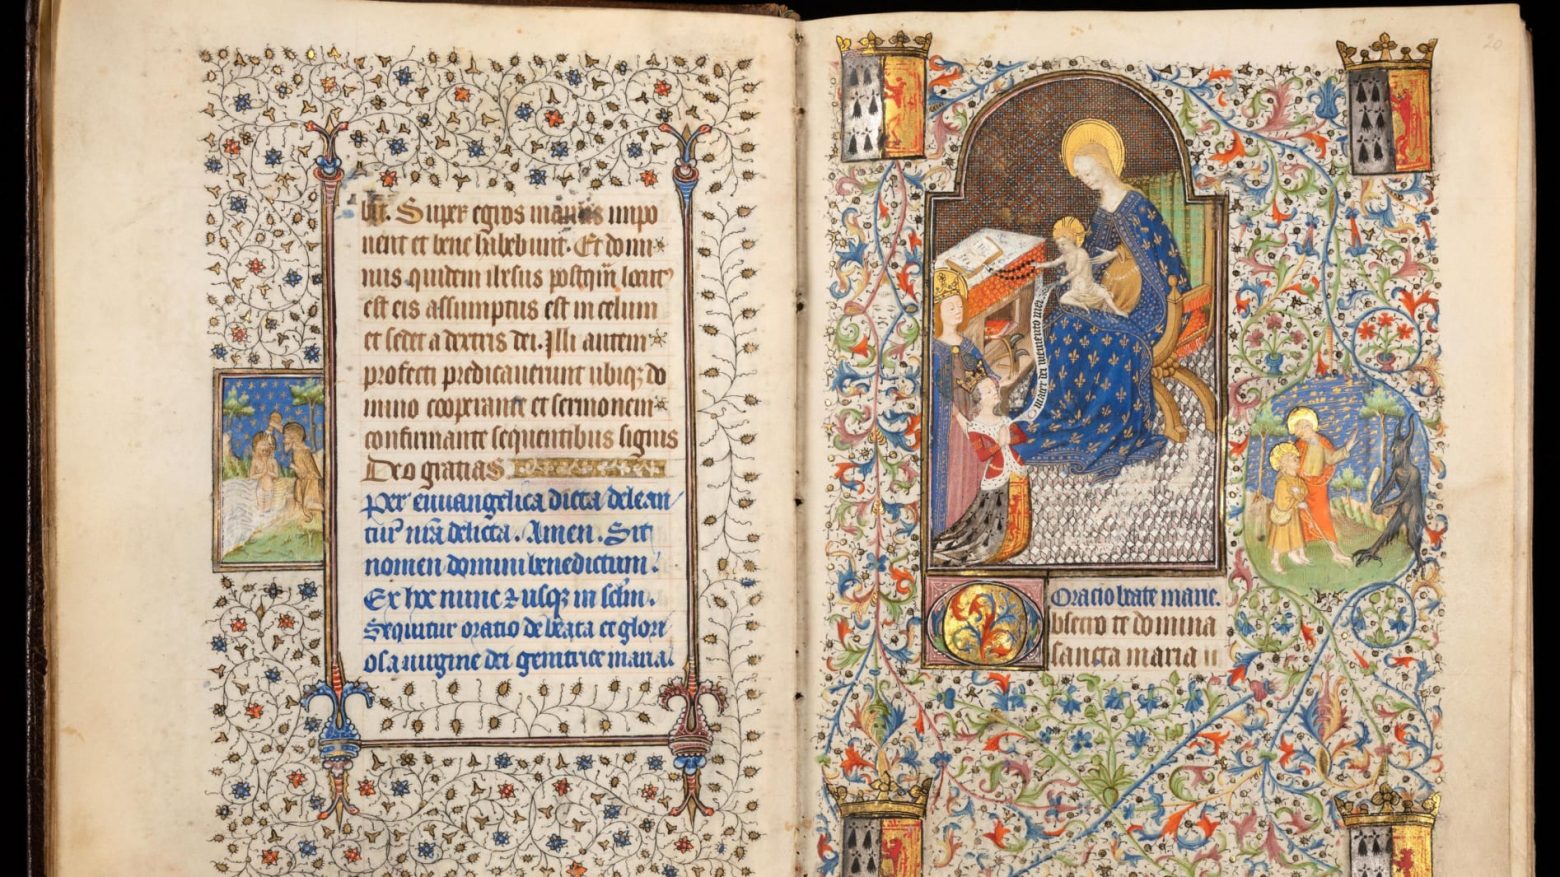 bũt. Super egros manus impo
nent et bene habebunt. Et domi
nus quidem ihesus postq̃m locut9
est eis assumptus est in celum
et sedet a dextris dei. Illi autem
profecti predicauerunt ubiq; do
mino cooperante et sermonem
confirmante sequentibus signis
Deo gratias
Per euuangelica dicta delean
tur nr̃a delicta. Amen. Sit
nomen domini benedictum.
Ex hoc nunc ⁊ usq; in sc̃lm.
Sequitur oratio de beata et glori
osa uirgine dei genitrice maria.
mater dei memento mei
Oracio beate marie.
Obsecro te domina
sancta maria
20